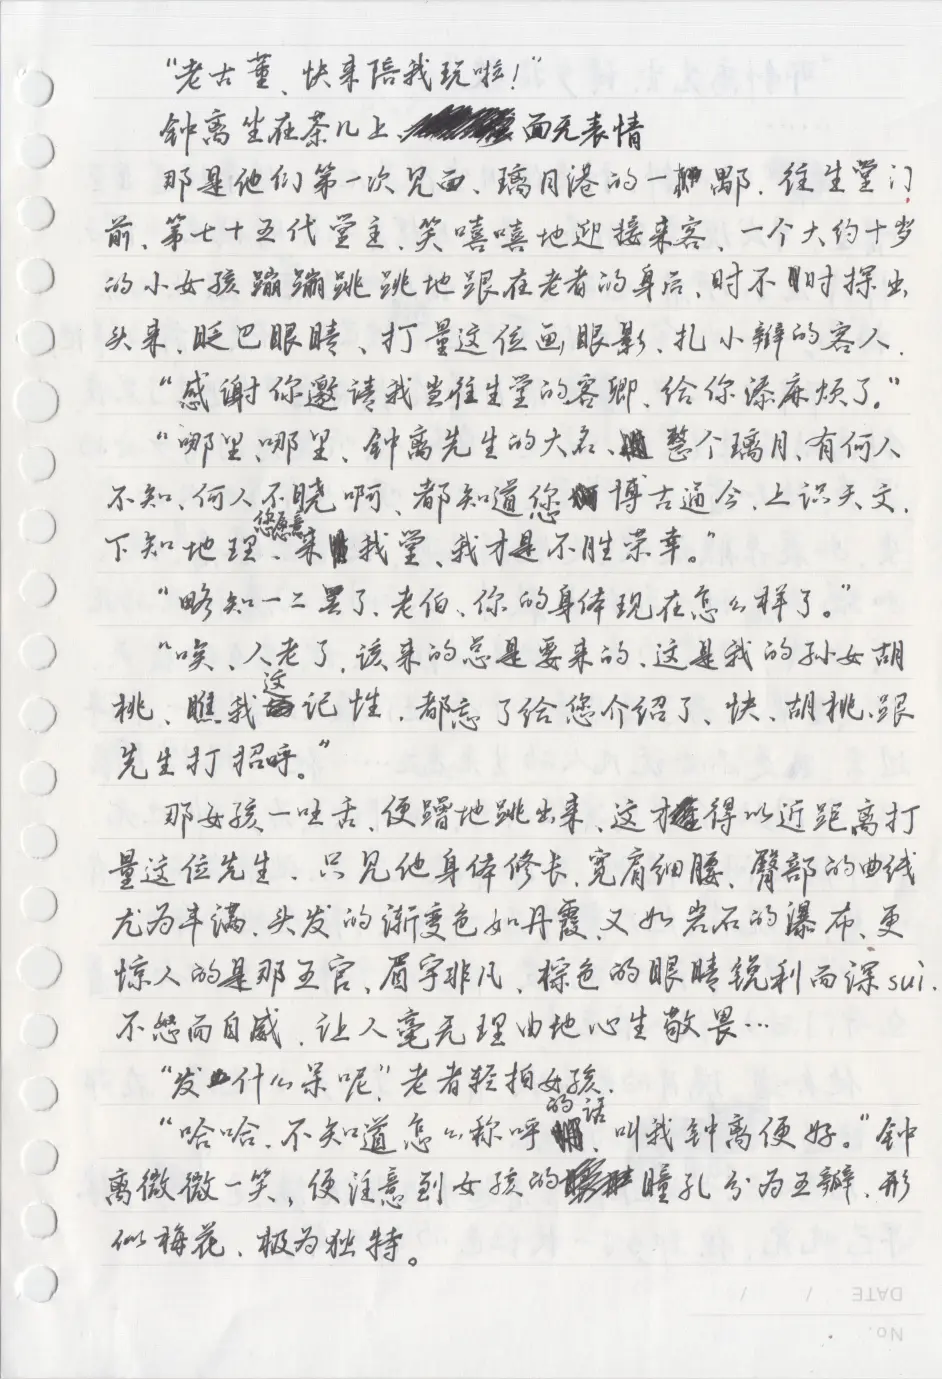 “老古董、快来陪我玩啦！”
钟离坐在茶几上、面无表情
那是他们第一次见面、璃月港的一隅、往生堂门
前、第七十五代堂主、笑嘻嘻地迎接来客、一个大约十岁
的小女孩蹦蹦跳跳地跟在老者的身后、时不时探出
头来、眨巴眼睛、打量这位画眼影、扎小辫的客人.
“感谢你邀请我当往生堂的客卿、给你添麻烦了。”
“哪里、哪里、钟离先生的大名、整个璃月、有何人
不知、何人不晓啊、都知道您博古通今、上识天文、
下知地理、您愿意来我堂、我才是不胜荣幸。”
“略知一二罢了、老伯、你的身体现在怎么样了。”
“唉、人老了、该来的总是要来的、这是我的孙女胡
桃、瞧我这记性、都忘了给您介绍了、快、胡桃、跟
先生打招呼。”
那女孩一吐舌、便蹭地跳出来、这才得以近距离打
量这位先生、只见他身体修长、宽肩细腰、臀部的曲线
尤为丰满、头发的渐变色如丹霞、又如岩石的瀑布、更
惊人的是那五官、眉宇非凡、棕色的眼睛锐利而深sui.
不怒而自威、让人毫无理由地心生敬畏…
“发什么呆呢”老者轻拍女孩.
“哈哈、不知道怎么称呼的话、叫我钟离便好。”钟
离微微一笑，便注意到女孩的瞳孔分为五瓣、形
似梅花、极为独特。
DATE / /
No.